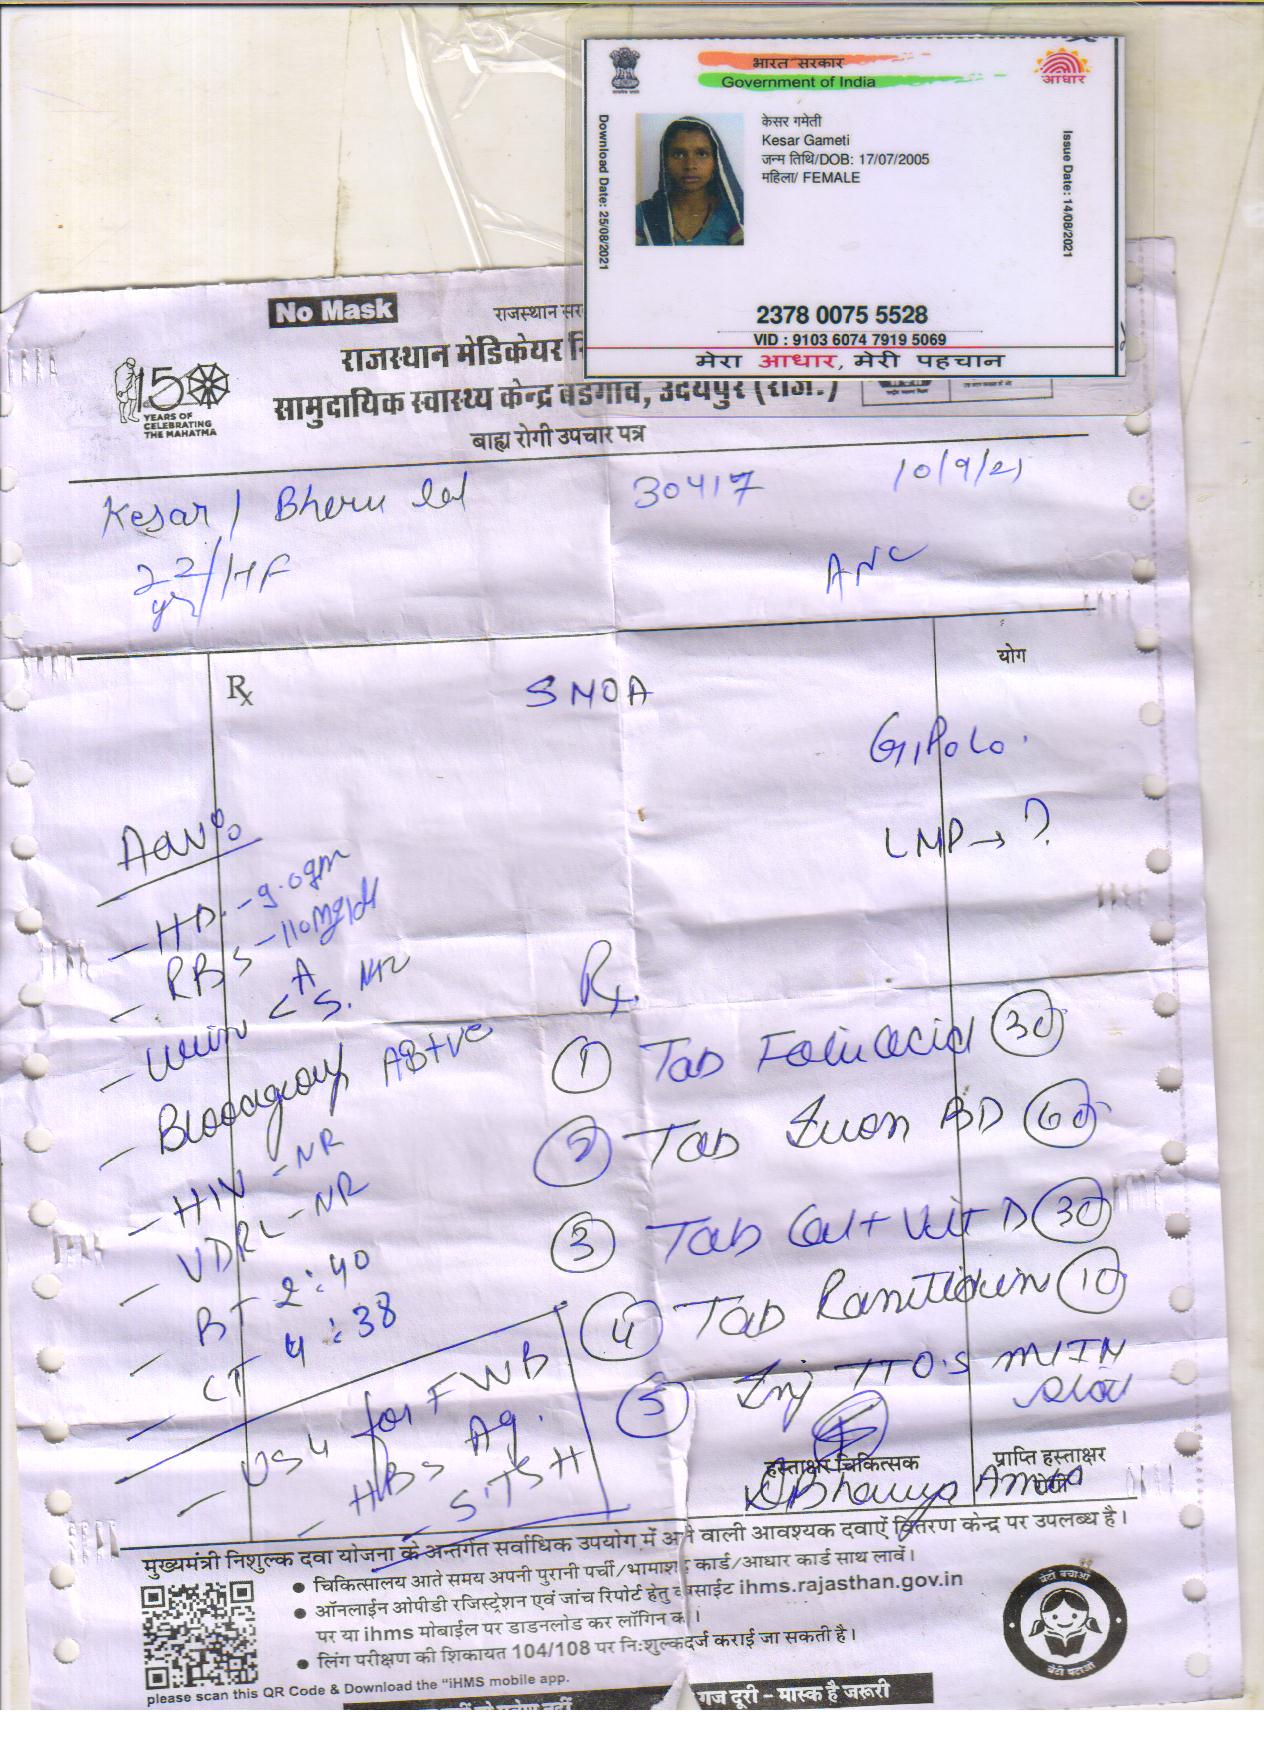 भारत सरकार
Government of India
आधार
केसर गमेती
Kesar Gameti
जन्म तिथि/DOB: 17/07/2005
महिला/ FEMALE
Download Date: 25/08/2021
Issue Date: 14/08/2021
2378 0075 5528
VID : 9103 6074 7919 5069
मेरा आधार, मेरी पहचान
No Mask
राजस्थान
राजस्थान मेडिकेयर
150
YEARS OF
CELEBRATING
THE MAHATMA
सामुदायिक स्वास्थ्य केन्द्र बडगांव, उदयपुर (राज.)
बाह्य रोगी उपचार पत्र
Kesar / Bheru lal 30417 10/9/21
22/HF
yr
ANC
Rx योग
G1P0L0.
LMP → ?
Adv
- HB - 9.0gm
- RBS - 110mg/dl
- Urine A
S. Nil
- Bloodgroup AB+ve
- HIV - NR
- VDRL - NR
- BT 2:40
- CT 4:38
- USG for FWB
- HBs Ag.
- S.TSH
Rx
1 Tab Folic acid 30
2 Tab Iron BD 60
3 Tab Cal + Vit D 30
4 Tab 10
5 Inj TT 0.5 ml IM
stat
हस्ताक्षर चिकित्सक प्राप्ति हस्ताक्षर
मुख्यमंत्री निशुल्क दवा योजना के अन्तर्गत सर्वाधिक उपयोग में आने वाली आवश्यक दवाऐं वितरण केन्द्र पर उपलब्ध है।
● चिकित्सालय आते समय अपनी पुरानी पर्ची/भामाशाह कार्ड/आधार कार्ड साथ लावें।
● ऑनलाईन ओपीडी रजिस्ट्रेशन एवं जांच रिपोर्ट हेतु वेबसाईट ihms.rajasthan.gov.in
पर या ihms मोबाईल पर डाडनलोड कर लॉगिन
● लिंग परीक्षण की शिकायत 104/108 पर नि:शुल्क दर्ज कराई जा सकती है।
please scan this QR Code & Download the "iHMS mobile app.
बेटी बचाओ
बेटी पढाओ
गज दूरी – मास्क है जरूरी